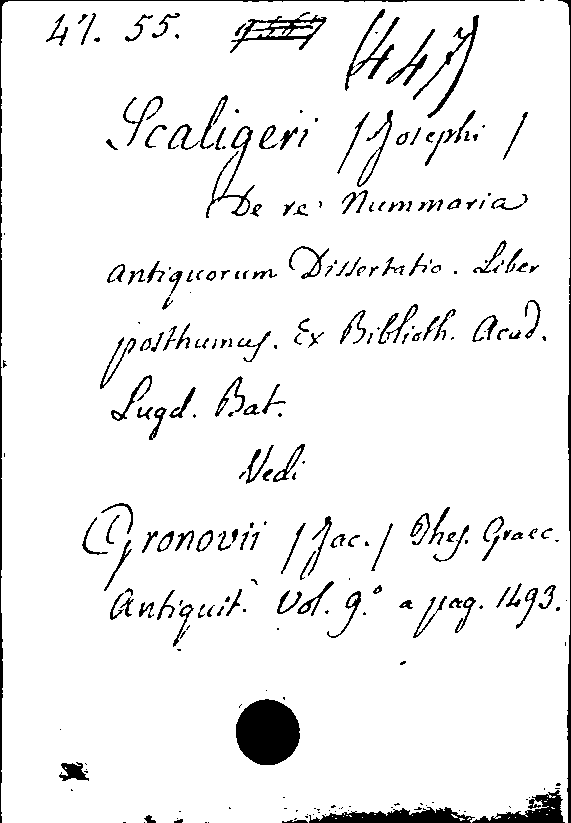 47. 55. (447)
Scaligeri /Josephi/
De re Nummaria
antiquorum Dissertatio. Liber
posthumus. Ex Biblioth. Acad.
Lugd. Bat.
Vedi
Gronovii /Jac./ Thes. Graec.
Antiquit. Vol. 9.° a pag. 1493.